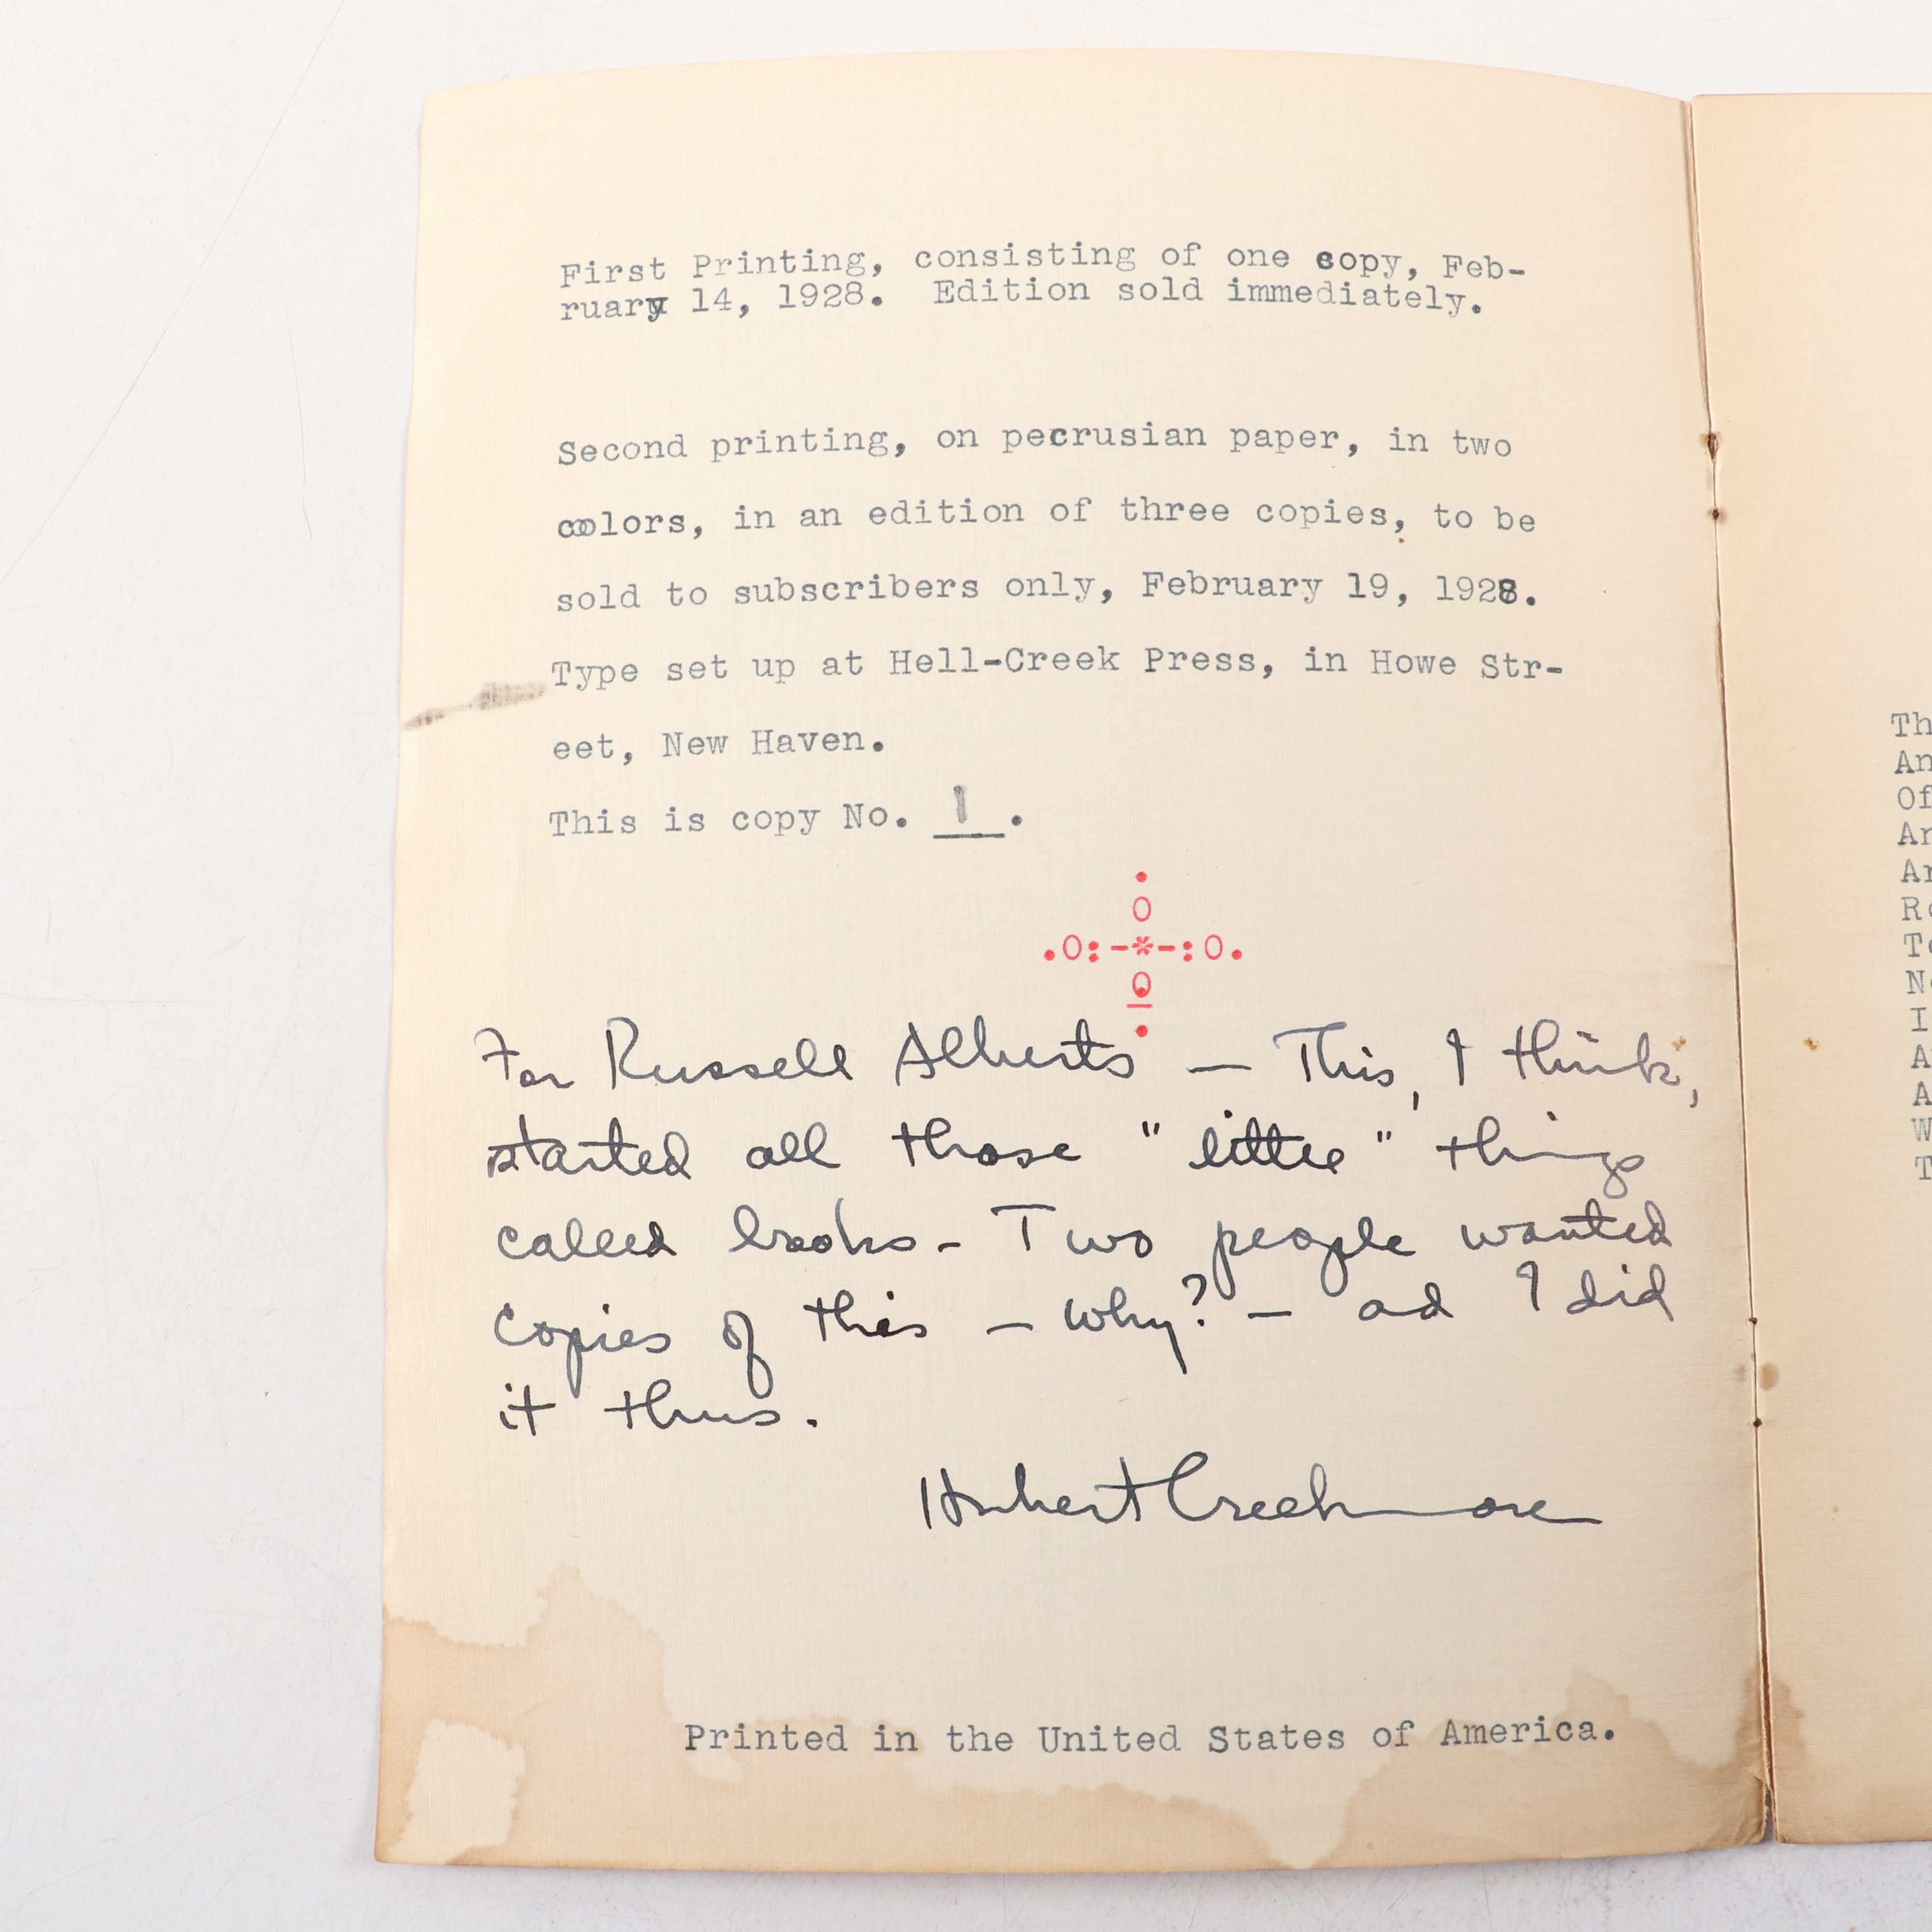 First Printing, consisting of one copy, Feb-
ruary 14, 1928. Edition sold immediately.
Second printing, on pecrusian paper, in two
colors, in an edition of three copies, to be
sold to subscribers only, February 19, 1928.
Type set up at Hell-Creek Press, in Howe Str-
eet, New Haven.
This is copy No. 1.
.
O
.O:-*-:O.
O
.
For Russell Alberts — This, I think,
started all those "little" things
called books - Two people wanted
copies of this — why? — ad I did
it thus.
Hubert Creekmore
Printed in the United States of America.
Th
An
Of
An
An
Ro
To
No
I
A
A
W
T